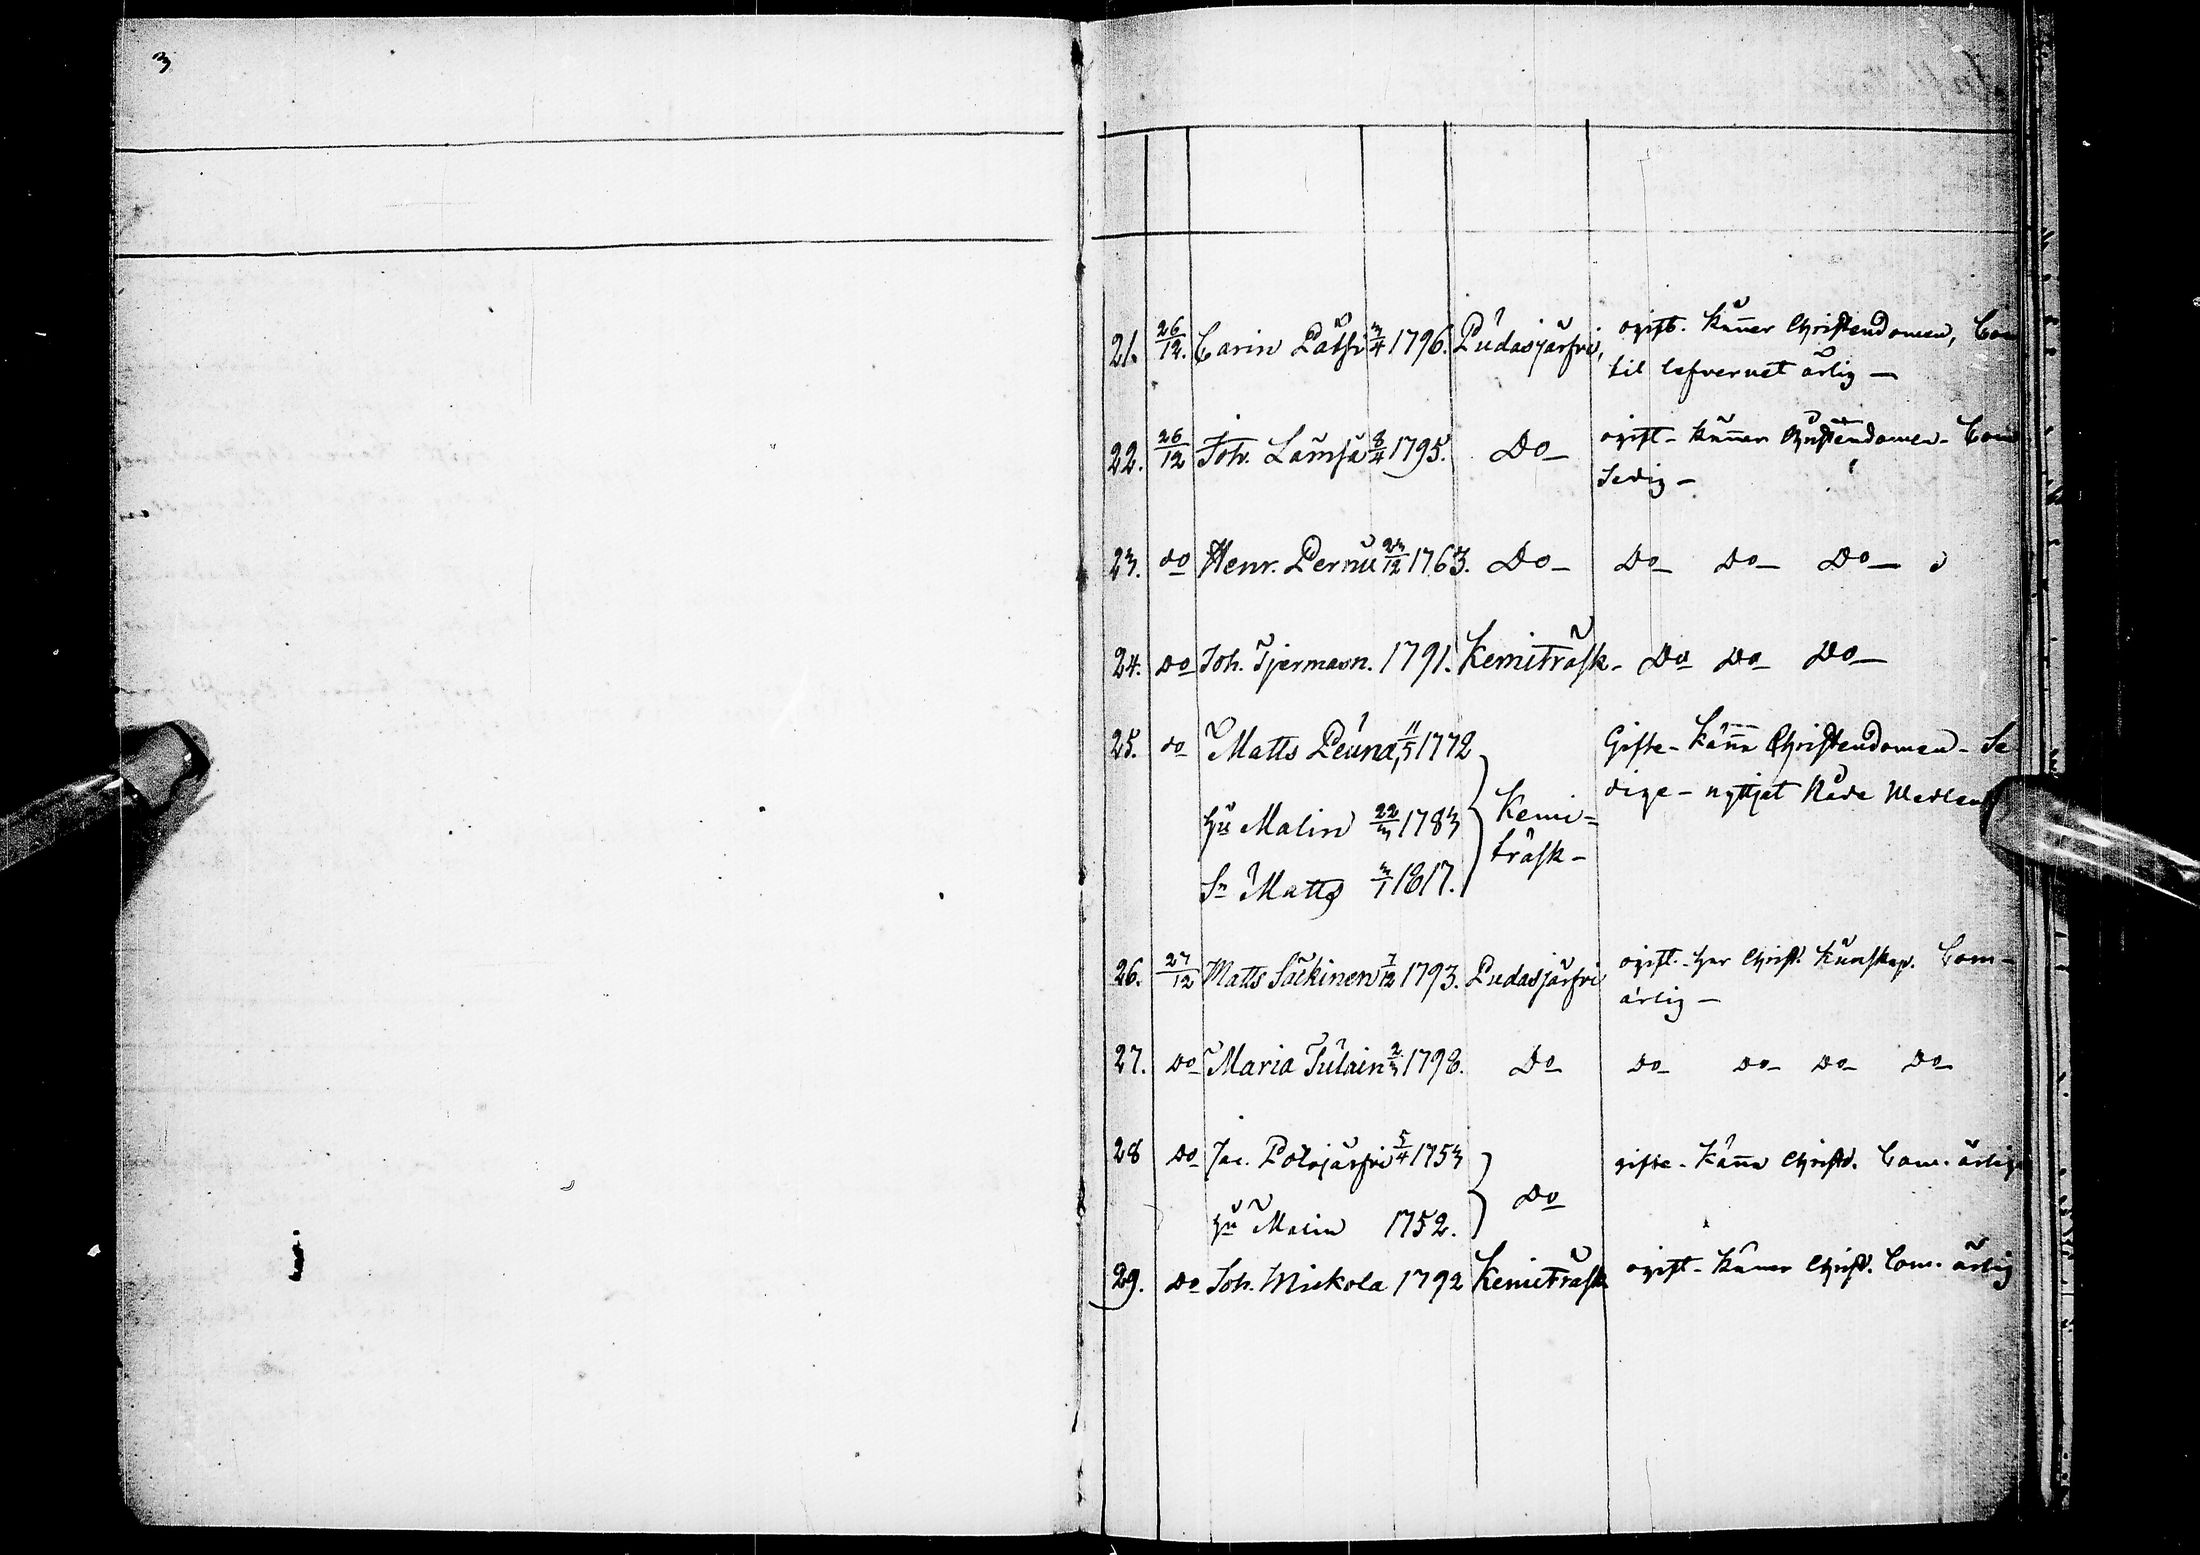 3
21. 26/12. Carin Lätfi 3/4 1796. Pudasjärfvi, ogift. känner Christendomen, Com
til lefvernet ärlig —
22. 26/12 Joh. Lämsä 8/4 1795. Do ogift - känner Christendomen - Com
Sedig —
23. do Henr. Pernu 23/12 1763. Do Do Do Do
24. Do Joh. Tjermavn. 1791. Kemiträsk - Do Do Do
25. do Matts Peuna, 11/5 1772 Gifte - känna Christendomen - Se
dige - nyttjat Nåde Medlen
hu Malin 22/3 1783 Kemi=
träsk -
Sn Matts 3/1 1817.
26. 27/12 Matts Säkinen 7/12 1793. Pudasjärfvi ogift. - har Christ. kunskap. Com -
ärlig —
27. Do Maria Julain 2/3 1798. Do Do Do Do Do
28 Do Jac. Polojärfvi 5/4 1753 gifte - känna Christd. Com. ärlige
hu Malin 1752. Do
29. Do Joh. Mickola 1792 Kemiträsk ogift - känner Christ. Com. ärlig